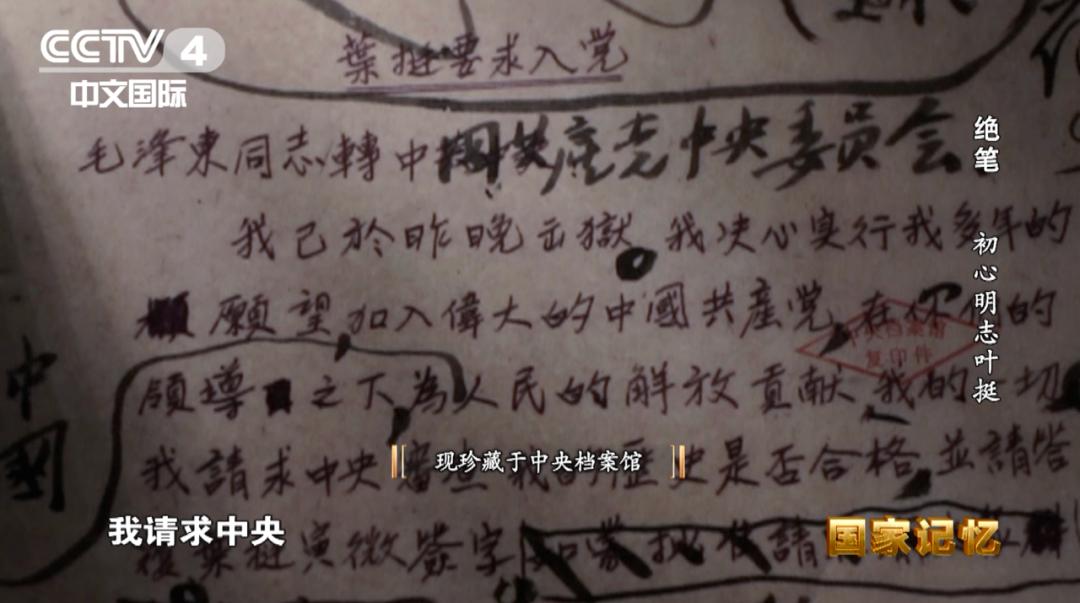 CCTV 4
中文国际
葉挺要求入党
毛澤東同志轉中國共産党中央委員会
我已於昨晚出獄,我决心实行我多年的
願望,加入偉大的中國共產党,在你们的
領導之下,為人民的解放貢献我的一切
我請求中央審查我的歷史是否合格,並請答
葉挺寅微簽字
中國
中央档案馆
复印件
绝笔 初心明志叶挺
现珍藏于中央档案馆
我请求中央
国家记忆